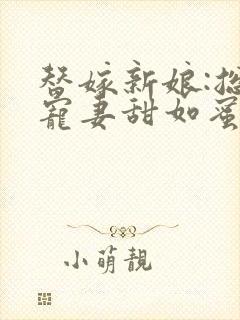 替嫁新娘:总
宠妻甜如蜜
小萌靓